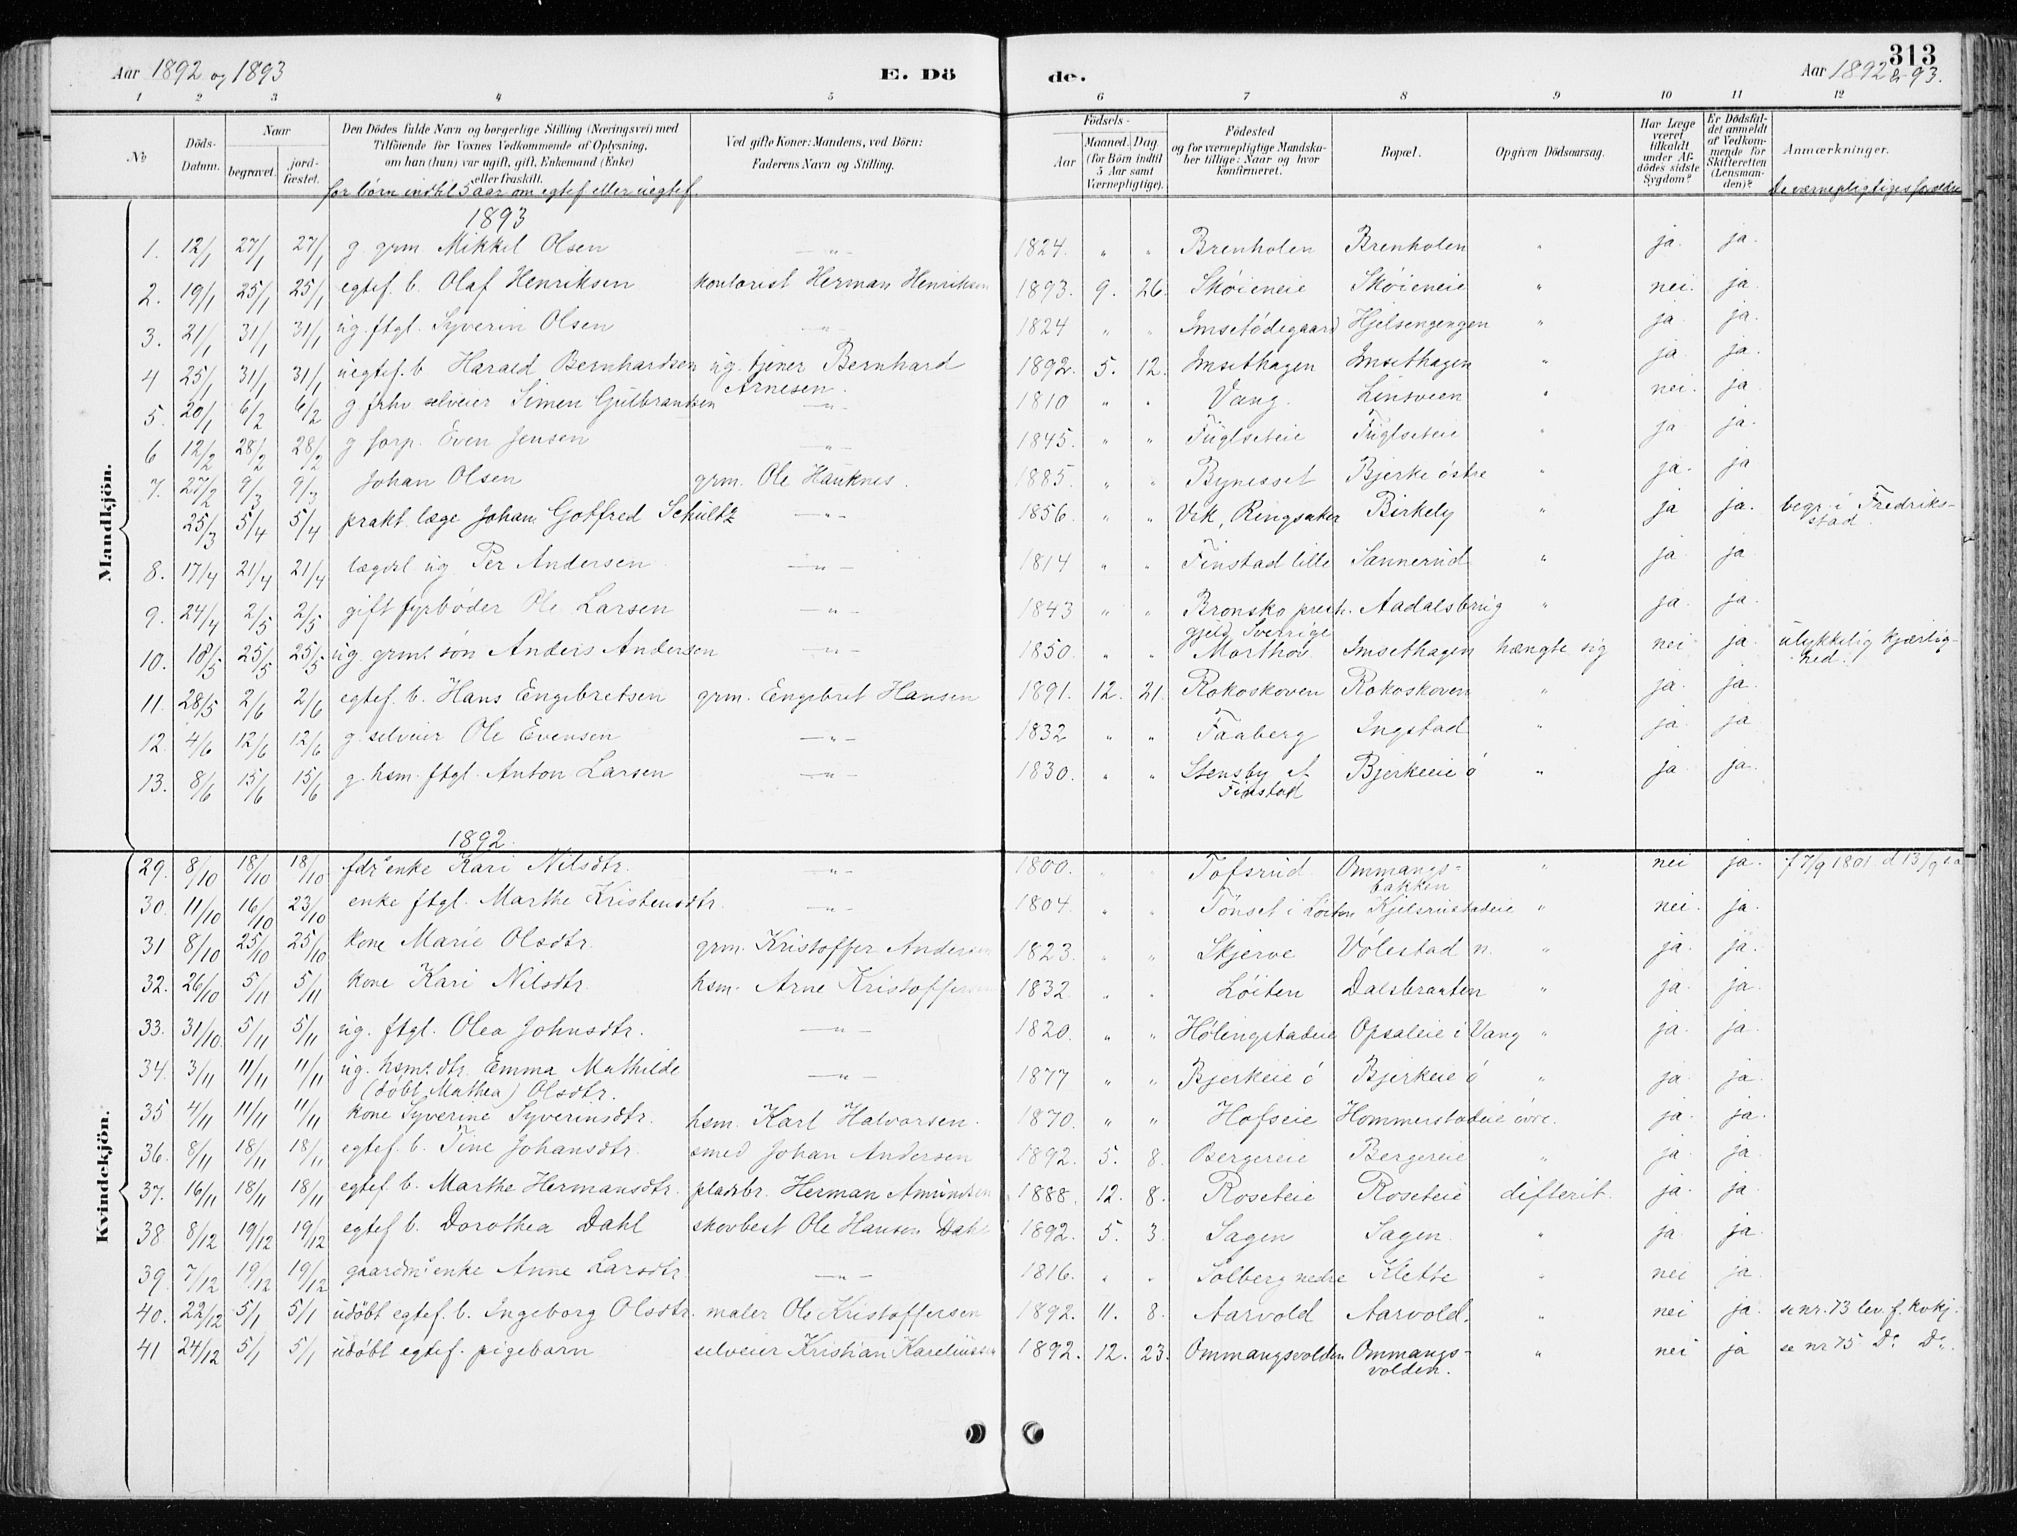 Aar 1892 og 1893 E. Dö de. Aar 1892 & 93. 313
1 2 3 4 5 6 7 8 9 10 11 12
No Döds-Datum. Naar begravet. jord-fæstet. Den Dödes fulde Navn og borgerlige Stilling (Næringsvei) med Tilföiende for Voxnes Vedkommende af Oplysning, om han (hun) var ugift, gift, Enkemand (Enke) eller fraskilt. Ved gifte Koner: Mandens, ved Börn: Faderens Navn og Stilling. Födsels- Aar Maaned. Dag. (for Börn indtil 5 Aar samt Værnepligtige). Födested og for værnepligtige Mandskaber tillige: Naar og hvor konfirmeret. Bopæl. Opgiven Dödsaarsag. Har Læge været tilkaldt under Afdödes sidste Sygdom? Er Dödsfaldet anmeldt af Vedkommende for Skifteretten (Lensmanden)? Anmærkninger.
for børn indtil 5 aar om egtef. eller uegtef. De værnepligtiges forældre
Mandkjön.
1893
1. 12/1 27/1 27/1 g. grm Mikkel Olsen — " — 1824. " " Brenholen Brenholen " ja. ja.
2. 19/1 25/1 25/1 egtef. b. Olaf Henriksen kontorist Herman Henriksen 1893. 9. 26. Skøieneie Skøieneie " nei. ja.
3. 21/1 31/1 31/1 ug. ftgl. Syverin Olsen — " — 1824 " " Imsetødegaard Hjelsengengen " ja. ja.
4 25/1 31/1 31/1 uegtef. b Harald Bernhardsen ug. tjener Bernhard Arnesen. 1892. 5. 12. Imsethagen Imsethagen " ja ja
5. 20/1 6/2 6/2 g frhv selveier Simen Gulbrandsen — " — 1810 " " Vang. Linsveen " nei. ja
6 12/2 28/2 28/2 g forp. Even Jensen — " — 1845. " " Fuglseteie Fuglseteie " ja ja.
7. 27/2 9/3 9/3 Johan Olsen grm. Ole Hauknes. 1885. " " Bynesset Bjerke østre ja. ja
25/3 5/4 5/4 prakt. læge Johan Gotfred Schultz — " — 1856. " " Vik, Ringsaker Birkely " ja ja. begr. i Fredriksstad.
8. 17/4 21/4 21/4 lægdsl ug. Per Andersen — " — 1814 " " Finstad lille Sannerud " ja ja
9. 24/4 2/5 2/5 gift fyrbøder Ole Larsen — " — 1843 " " Bronsko prest. gjeld Sverrige Aadalsbrug " ja. ja.
10. 18/5 25/5 25/5 ug. grms. søn Anders Andersen — " — 1850. " " Morthov Imsethagen hængte sig nei ja. ulykkelig kjærlighed.
11. 28/5 2/6 2/6 egtef. b. Hans Engebretsen grm. Engebret Hansen 1891. 12. 21. Rokoskoven Rokoskoven " ja. ja.
12. 4/6 12/6 12/6 g. selveier Ole Evensen — " — 1832 " " Faaberg Ingstad " ja. ja
13. 8/6 15/6 15/6 g. hsm. ftgl. Anton Larsen — " — 1830. " " Stensby Finstad Bjerkeeie ø " ja ja.
Kvindekjön.
1892.
29. 8/10 18/10 18/10 fdr. enke Kari Nilsdtr. — " — 1800. " " Tofsrud Ommangsbakken " nei ja. f 7/9 1801 d 13/9
30. 11/10 16/10 23/10 enke ftgl. Marthe Kristensdtr. — " — 1804. " " Tønset i Løiten Kjelsrustadeie " nei. ja.
31 8/10 25/10 25/10 kone Marie Olsdtr. grm. Kristoffer Andersen 1823. " " Skjerve Volestad n. " ja. ja.
32. 26/10 5/11 5/11 kone Kari Nilsdtr. hsm. Arne Kristoffersen 1832. " " Løiten Dalsbraaten " ja. ja.
33. 31/10. 5/11 5/11 ug. ftgl. Olea Johnsdtr. — " — 1820. " " Hølingstadeie Opsaleie i Vang " ja. ja.
34. 3/11 11/11 11/11 ug. hsms. dtr. Emma Mathilde (døbt Mathea) Olsdtr. — " — 1877 " " Bjerkeie ø Bjerkeie ø " ja. ja.
35 4/11 11/11 11/11 kone Syverine Syverinsdtr. hsm. Karl Halvorsen. 1870. " " Hofseie Hommerstadeie øvre. ja. ja.
36. 8/11 18/11 18/11 egtef. b. Tine Johansdtr. smed Johan Andersen 1892. 5. 8. Bergereie Bergereie " ja. ja.
37. 16/11 18/11 18/11 egtef. b. Marthe Hermansdtr. pladsbr. Herman Amundsen 1888. 12. 8. Roseteie Roseteie difterit. ja. ja
38 8/12 19/12 19/12 egtef b. Dorothea Dahl skovbest Ole Hansen Dahl 1892. 5. 3. Sagen Sagen. " ja. ja.
39. 7/12 19/12 19/12 gaardms enke Anne Larsdtr. — " — 1816. " " Solberg nedre Klette " nei ja.
40. 22/12 5/1 5/1 udøbt egtef. b. Ingeborg Olsdtr. maler Ole Kristoffersen 1892. 11. 8. Aarvold Aarvold. " nei ja. se nr. 73 lev. f. kvkj.
41 24/12 5/1 5/1 udøbt egtef. pigebarn selveier Kristian Kareliussen 1892. 12. 23. Ommangsvolden Ommangsvolden. " nei ja se nr 75 Do Do.